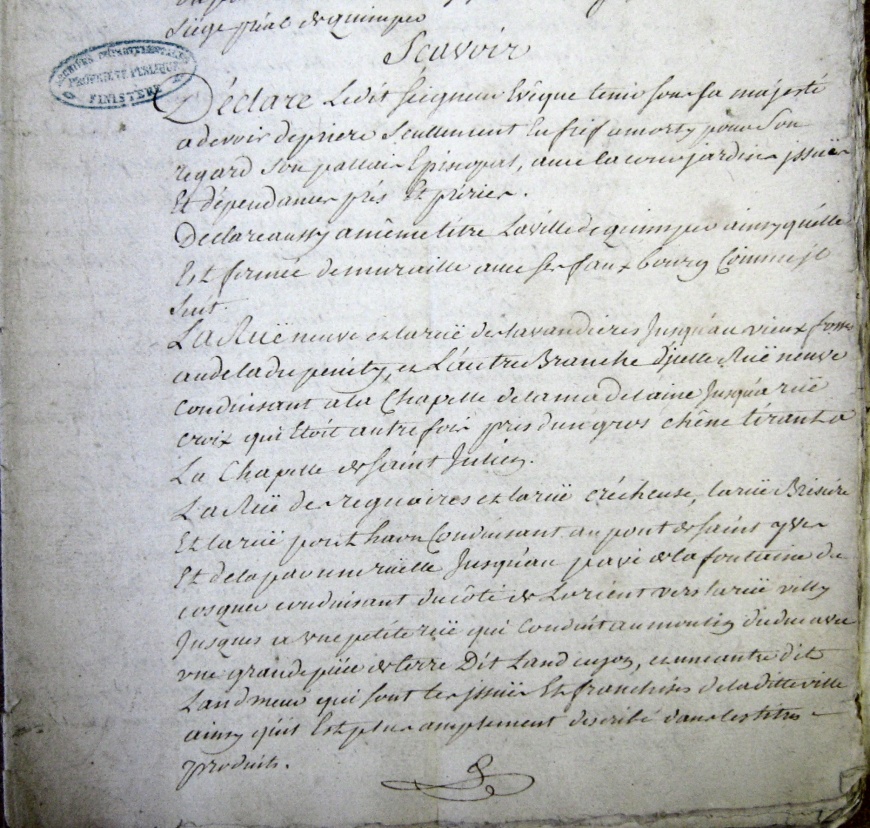 Siège p̃ial de quimper
Scavoir
ARCHIVES DÉPARTEMENTALES
PROPRIÉTÉ PUBLIQUE
FINISTÈRE
Déclare Ledit Seigneur Evêque tenir sous sa majesté
a devoir de priere Seullement En fief amorty pour Son
regard Son pallais Episcopal, avec la cour jardins jssues
Et dépendances près Et
Declare aussy a même titre La ville de quimper ainsy quelle
Est fermée de muraille avec ses faux bourg Comme jl
Suit
La Ruë neuve et la ruë des lavandieres Jusqu'au vieux fossé
au dela du penity, et L'autre Branche d'jcelle Ruë neuve
conduisant a la Chapelle de la madelaine Jusqu'a
croix qui Etoit autre fois pres d'un gros chêne tirant a
La Chapelle de Saint Julien.
La Ruë des reguaires et la ruë crécheuse, la ruë Brisiere
Et la ruë pors havn Conduisant au pont de Saint yves
Et de la par une ruëlle Jusqu'au pavé de la fontaine du
cosquer conduisant du côté de Lorient vers la ruë villy
Jusques a une petite ruë qui Conduit au moulin du duc avec
une grande piéce de terre Dit Land, et un autre dit
Landmeur qui sont les jssues Et franchises de la ditte ville
ainsy qu'il Est plus amplement describé dans les titres
produits.